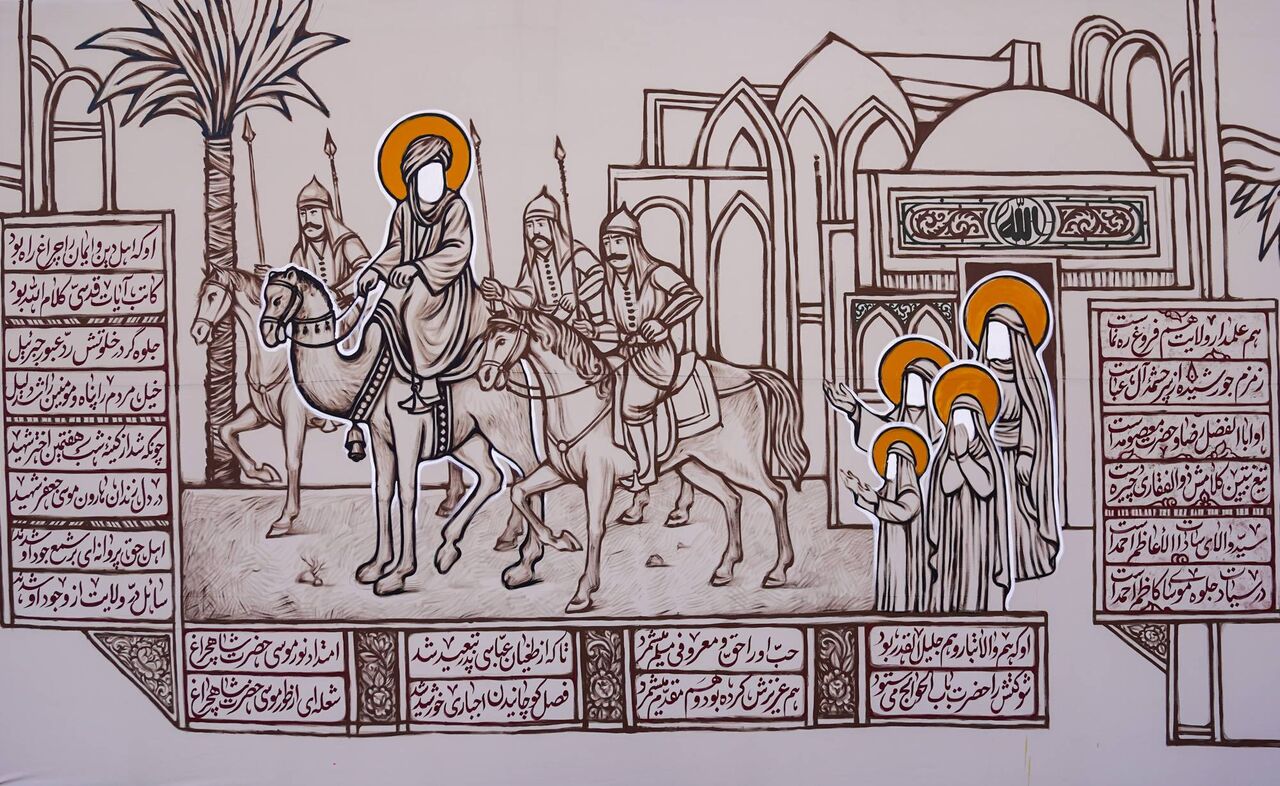 الله
هم علمدار ولایت هم فروغ ره نماست
زمزم جوشیده از سرچشمه آل عباست
او اباالفضل رضا و حضرت معصومه است
تیغ تبیین کلامش ذوالفقاری چیره است
سید والای سادات الاعاظم احمد است
در سیادت جلوه موسای کاظم احمد است
او که هم والاتبار و هم جلیل القدر بود
شوکتش را حضرت باب الحوائج می ستود
حب او را حق و معروفی میشمرد
هم عزیزش کرده بود و هم مقدم میشمرد
تا که از طغیان عباسی پدر تبعید شد
فصل کوچاندن اجباری خورشید شد
امتداد نور موسی حضرت شاهچراغ
شعله ای از طور موسی حضرت شاهچراغ
او که اهل دین و ایمان را چراغ راه بود
کاتب آیات قدسی کلام الله بود
جلوه گر در خلوتش رد عبور جبرئیل
خیل مردم را پناه و مومنین را شد دلیل
چونکه شد از کینه شب هفتمین اختر شهید
در دل زندان هارون موسی جعفر شهید
اهل حق پروانه ای بر شمع جود او شدند
سائل در ولایت از وجود او شدند